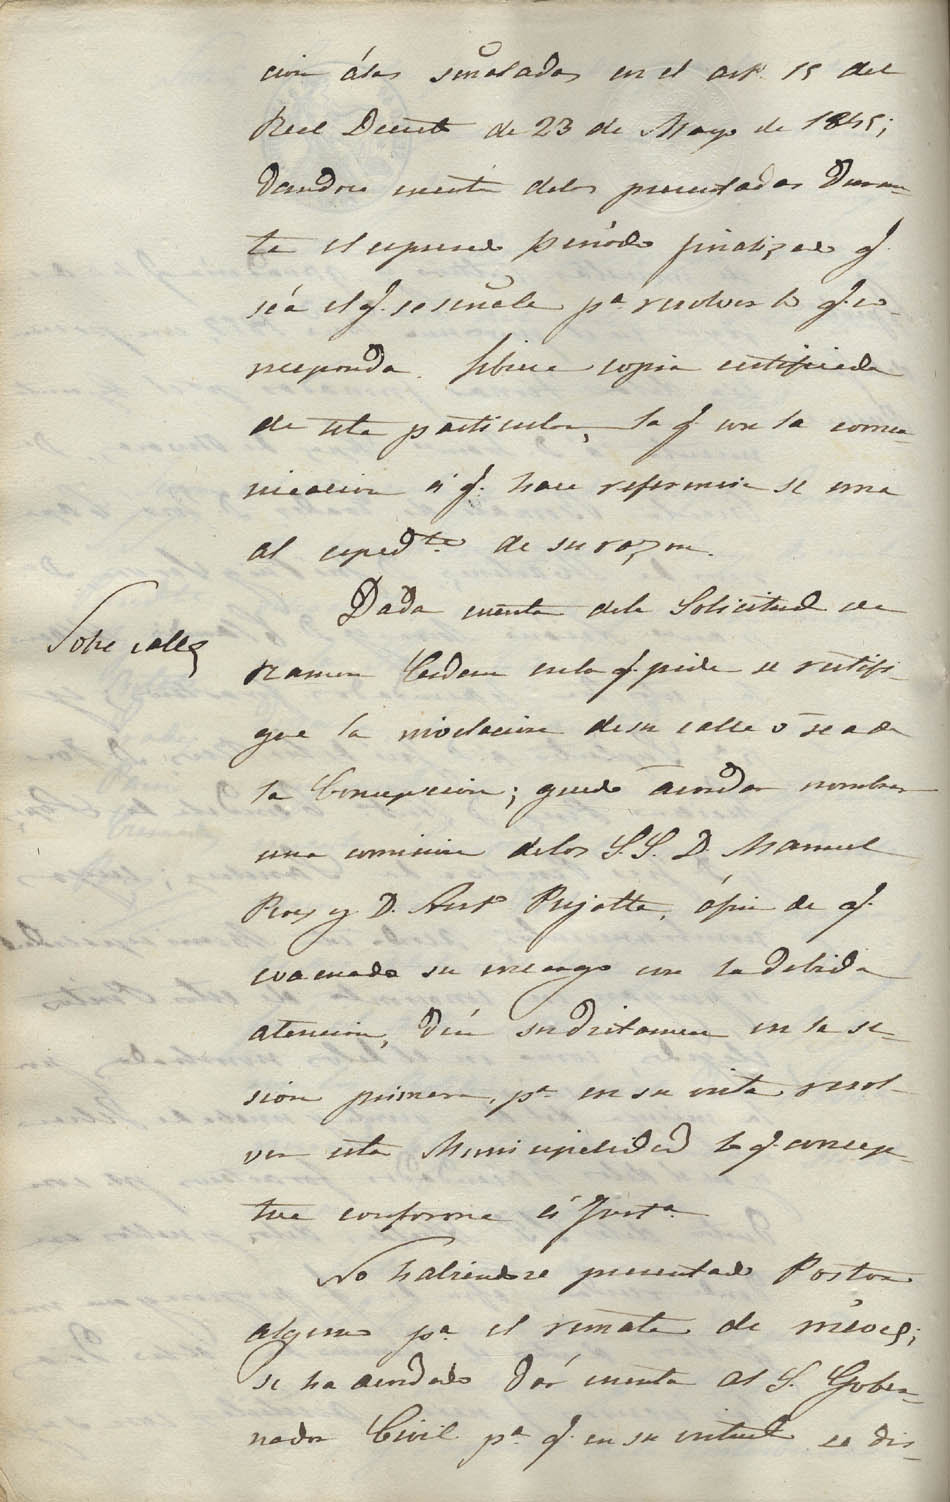 cion á las señaladas en el artº 15 del
Real Decreto de 23 de Mayo de 1845;
dandose cuenta de las presentadas duran-
te el espresado período finalizado q.
séa el q. se señale pª resolver lo q. co-
rresponda. Librese copia certificada
de este particular, la q. con la comu
nicacion á q. hace referencia se una
al espedte de su razon.
Sobre calles
Dada cuenta dela Solicitud de
Ramon Cerdan en la q. pide se rectifi-
que la nivelacion de su calle o sea de
la Concepcion; quedó acordar nombrar
una comision delos S.S. D. Manuel
Roy y D. Antº Pujalte, á fin de q.
evacuado su encargo con la debida
atencion, den su dictamen en la se-
sion primera, pª en su vista resol-
ver esta Municipalidad lo q. concep-
tue conforme á Justª
No habiendose presentado Postor
alguno pª el remate de nieves;
se ha acordado dár cuenta al S. Gober-
nador Civil pª q. en su virtud se dis-